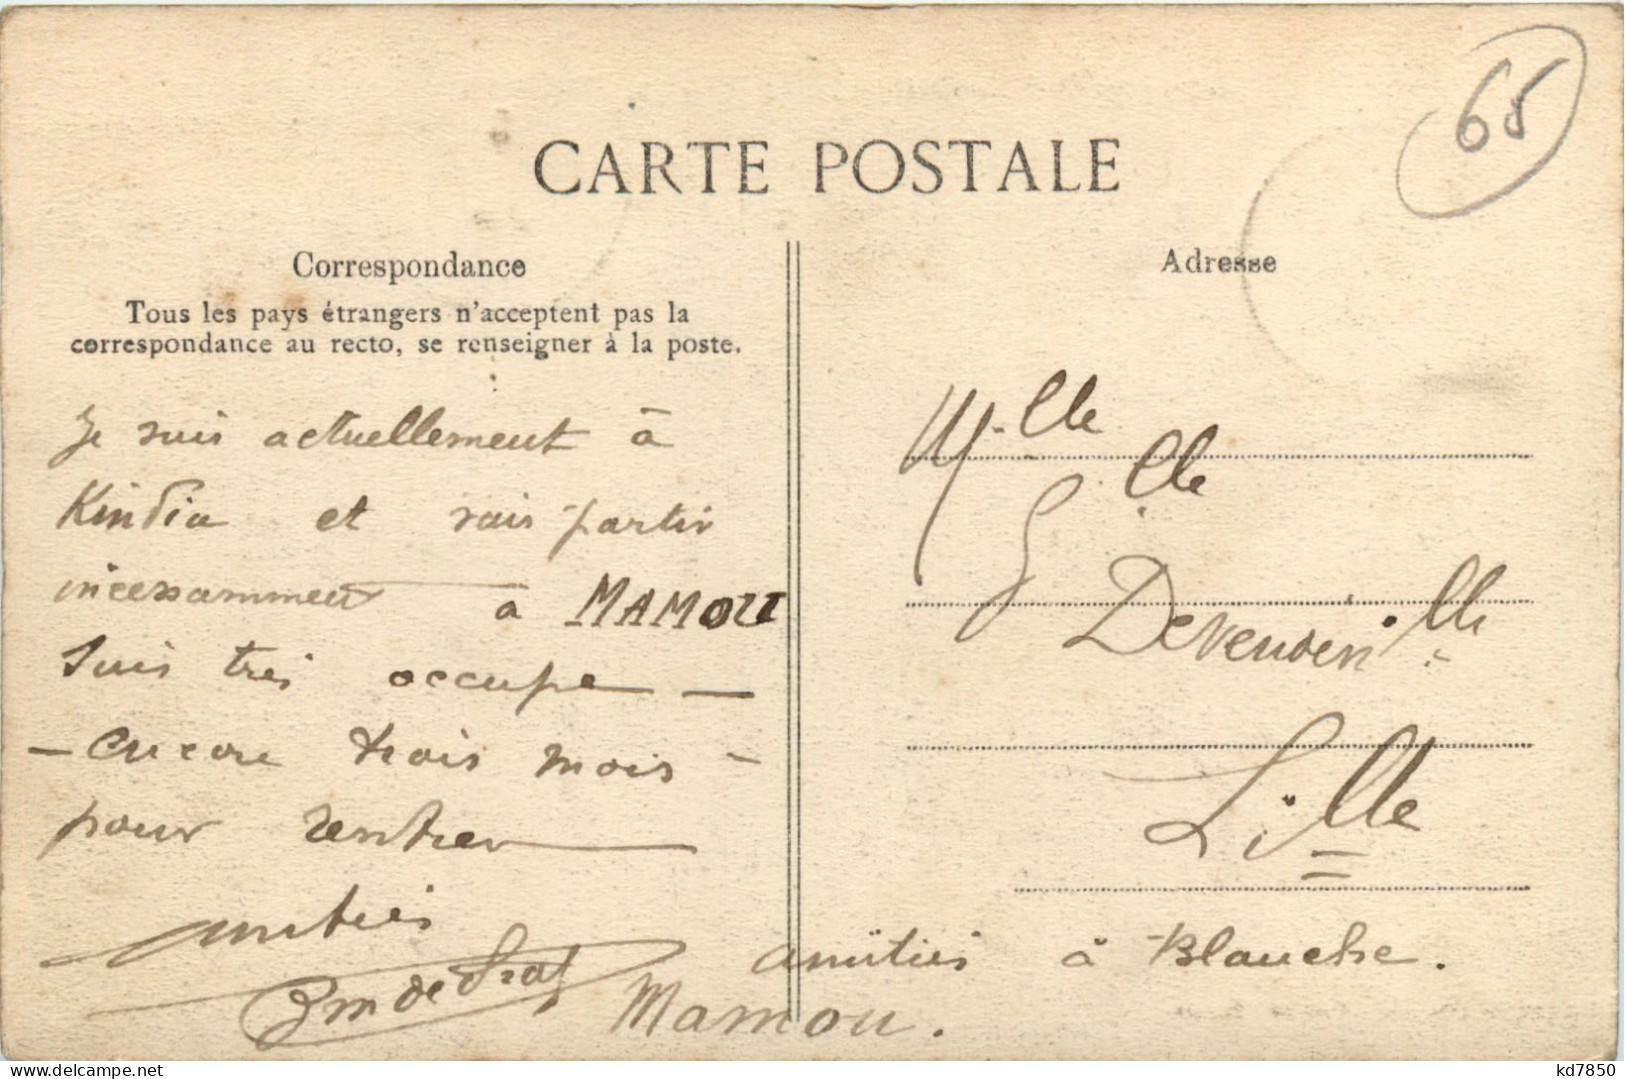 65
CARTE POSTALE
Correspondance
Tous les pays étrangers n'acceptent pas la
correspondance au recto, se renseigner à la poste.
Je suis actuellement à
Kindia et vais partir
incessamment à MAMOU
Suis très occupé —
— encore trois mois —
pour rentrer
amitiés
Adresse
M.elle
G.elle
Lille
amitiés à Blanche.
Mamou.
delcampe.net
kd7850